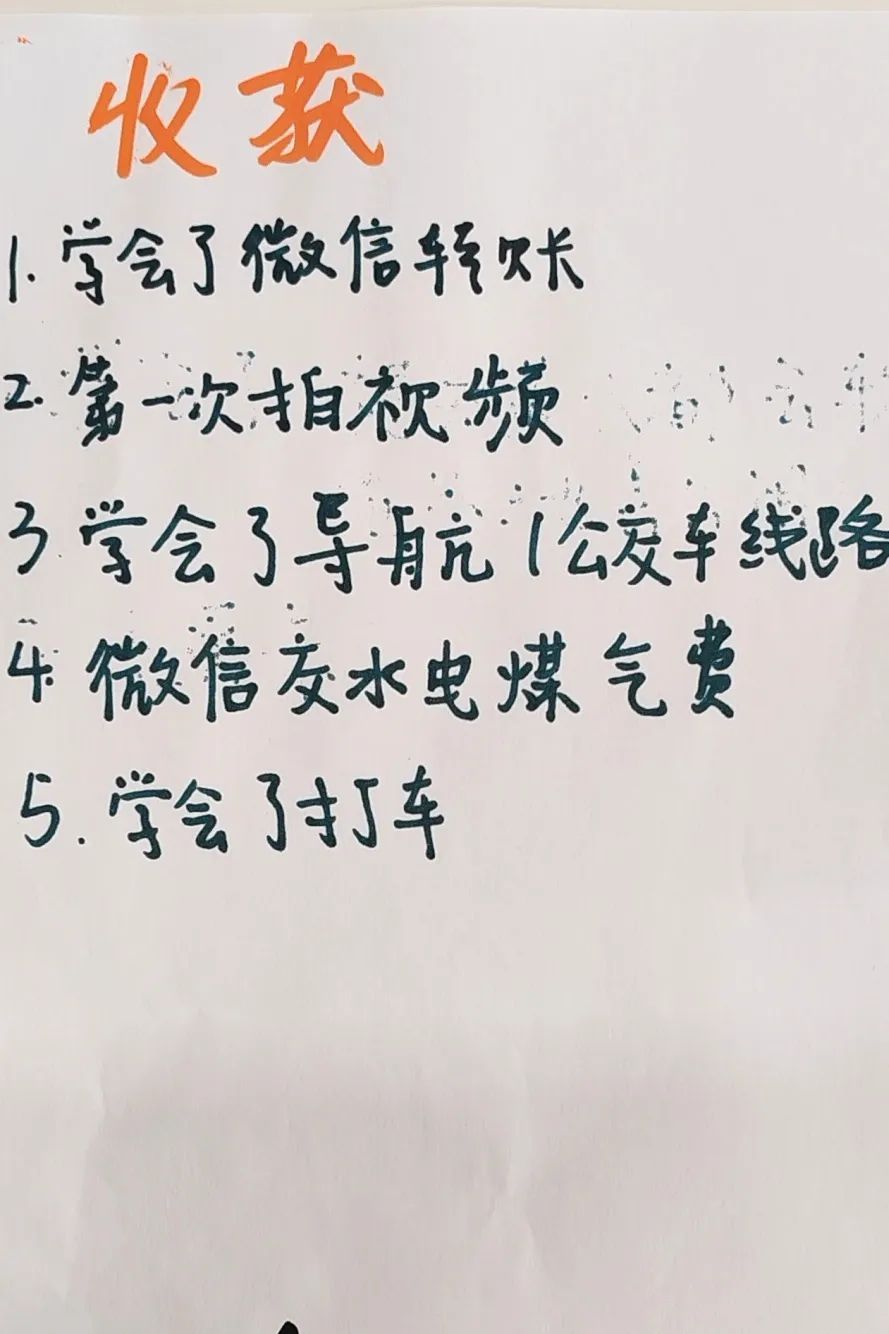 收获
1. 学会了微信转账
2. 第一次拍视频
3 学会了导航(公交车线路
4. 微信交水电煤气费
5. 学会了打车